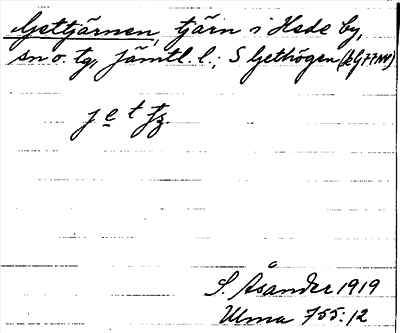 Gettjärnen, tjärn i Hede by,
sn o. tg, Jämtl. l.; S Gethögen (bl 77 NV)
S. Åsander 1919
Ulma 755:12